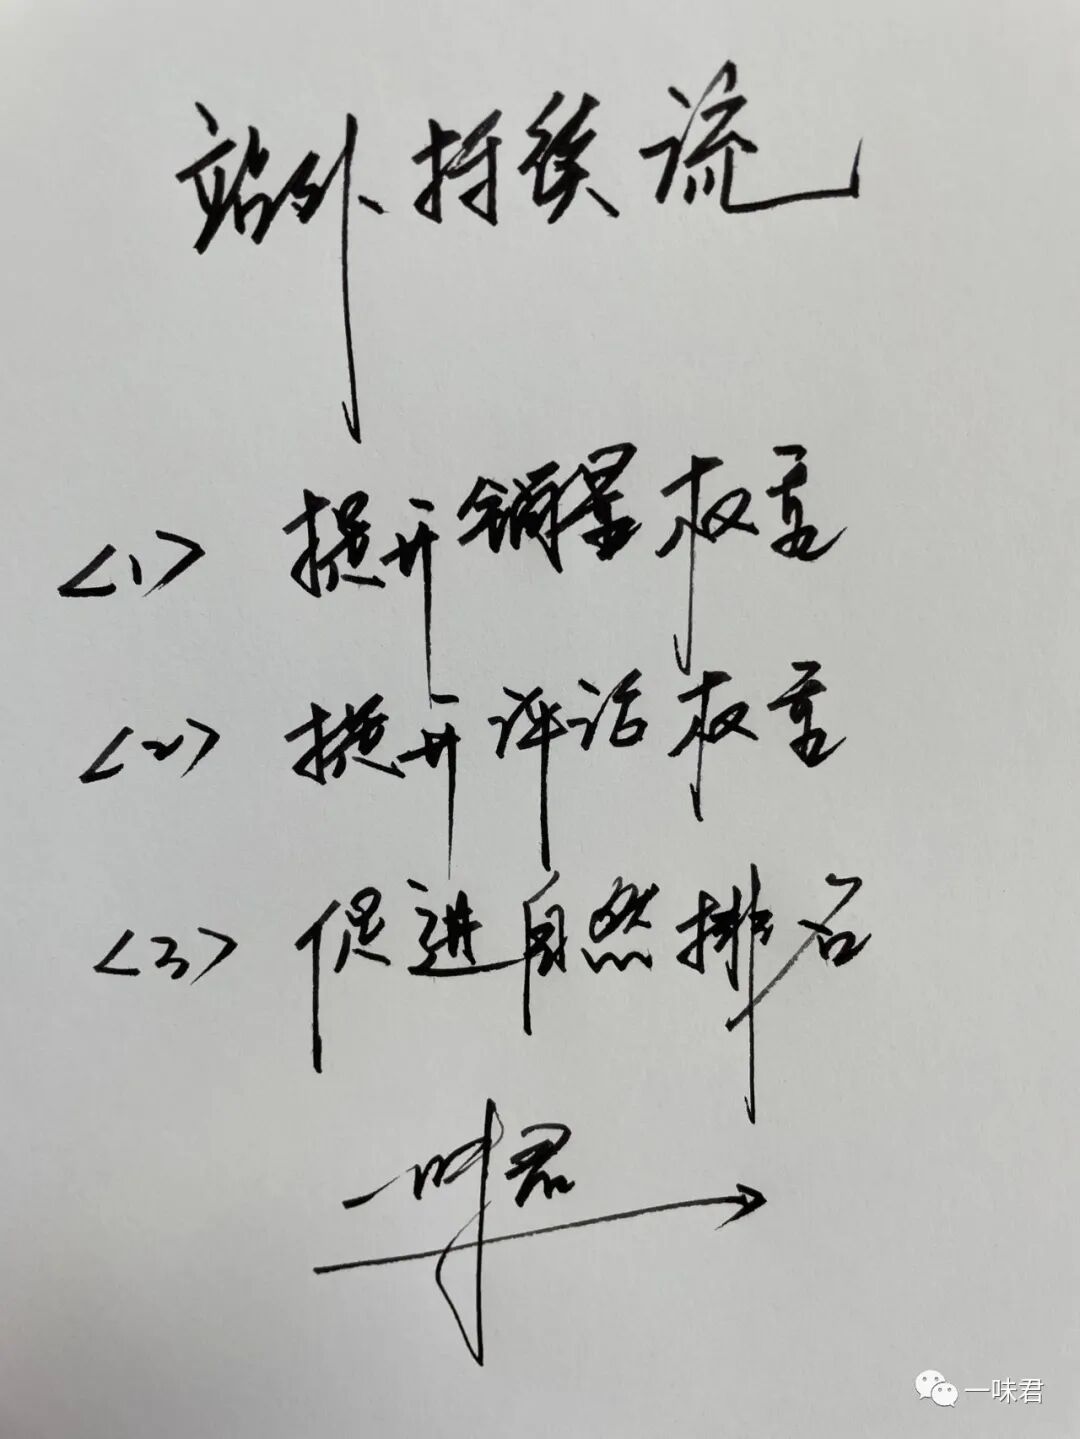 站外持续流
<1> 提升销量权重
<2> 提升评论权重
<3> 促进自然排名
一味君
一味君